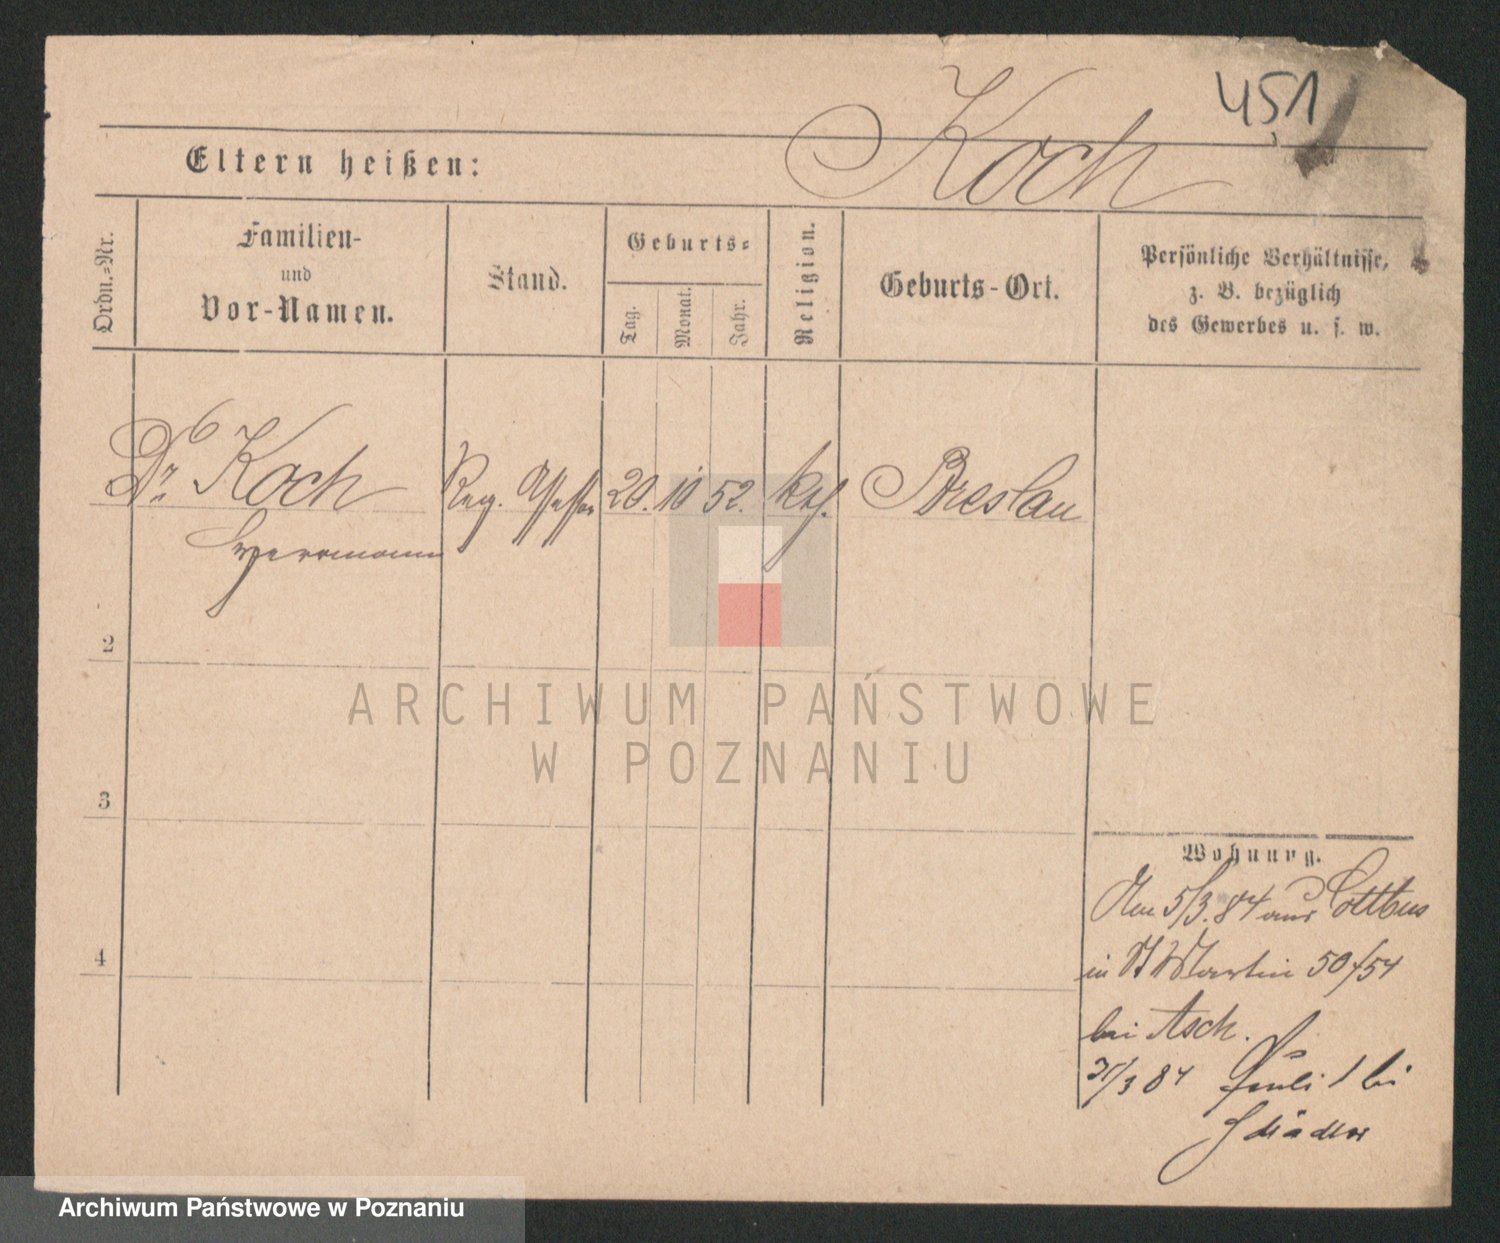 451
Koch
Eltern heißen:
Ordn.=Nr.
Familien-
und
Vor-Namen.
Stand.
Geburts=
Tag.
Monat.
Jahr.
Religion.
Geburts-Ort.
Persönliche Verhältnisse,
z. B. bezüglich
des Gewerbes u. s. w.
Dr. Koch Reg. 20. 10 52. Breslau
Herrmann
2
3
4
Wohnung.
5/3. 84 aus Cottbus
in St Martin 50/54
bei Asch.
31/3 84 Pauli 1 bei
ARCHIWUM PAŃSTWOWE
W POZNANIU
Archiwum Państwowe w Poznaniu